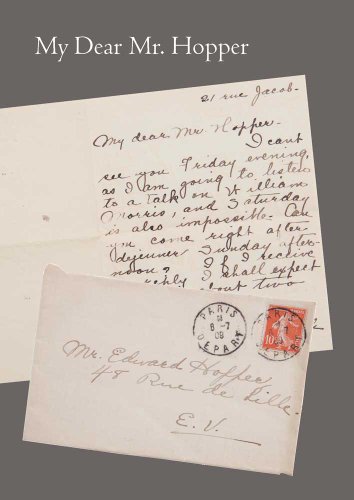 My Dear Mr. Hopper
21 rue Jacob-
My dear Mr Hopper-
I can't
see you Friday evening,
as I am going to listen
to a talk on William
Morris, and Saturday
is also impossible. Can
you come right after-
dejeuner Sunday after-
noon? If I receive
I shall expect
about two
PARIS
8-7
09
DEPART
PARIS
DEPART
10
Mr. Edward Hopper
48 Rue de Lille.
E.V.